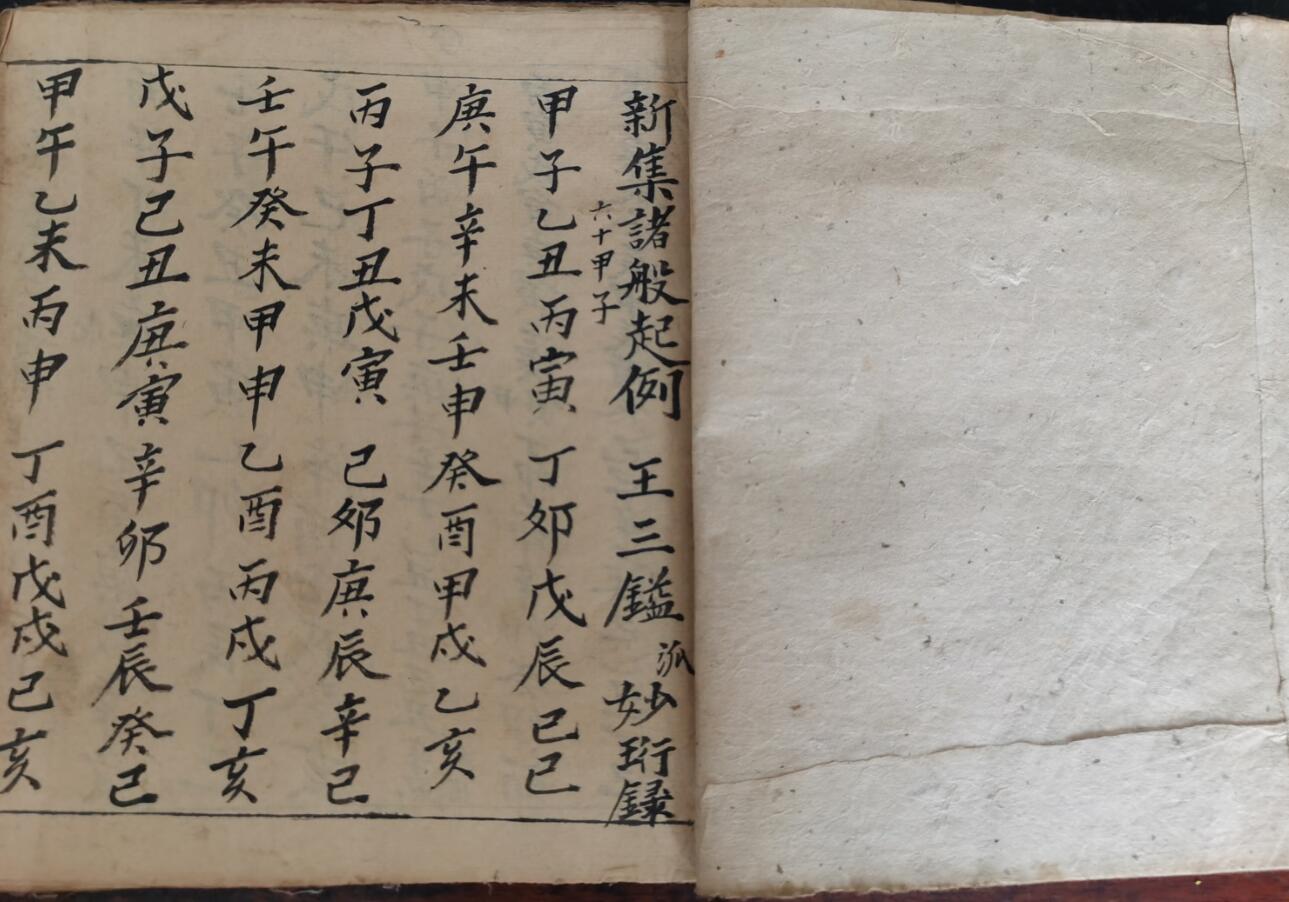 新集諸般起例 王三鎰 派妙珩録
六十甲子
甲子乙丑丙寅丁卯戊辰己巳
庚午辛未壬申癸酉甲戌乙亥
丙子丁丑戊寅己卯庚辰辛巳
壬午癸未甲申乙酉丙戌丁亥
戊子己丑庚寅辛卯壬辰癸巳
甲午乙未丙申丁酉戊戌己亥